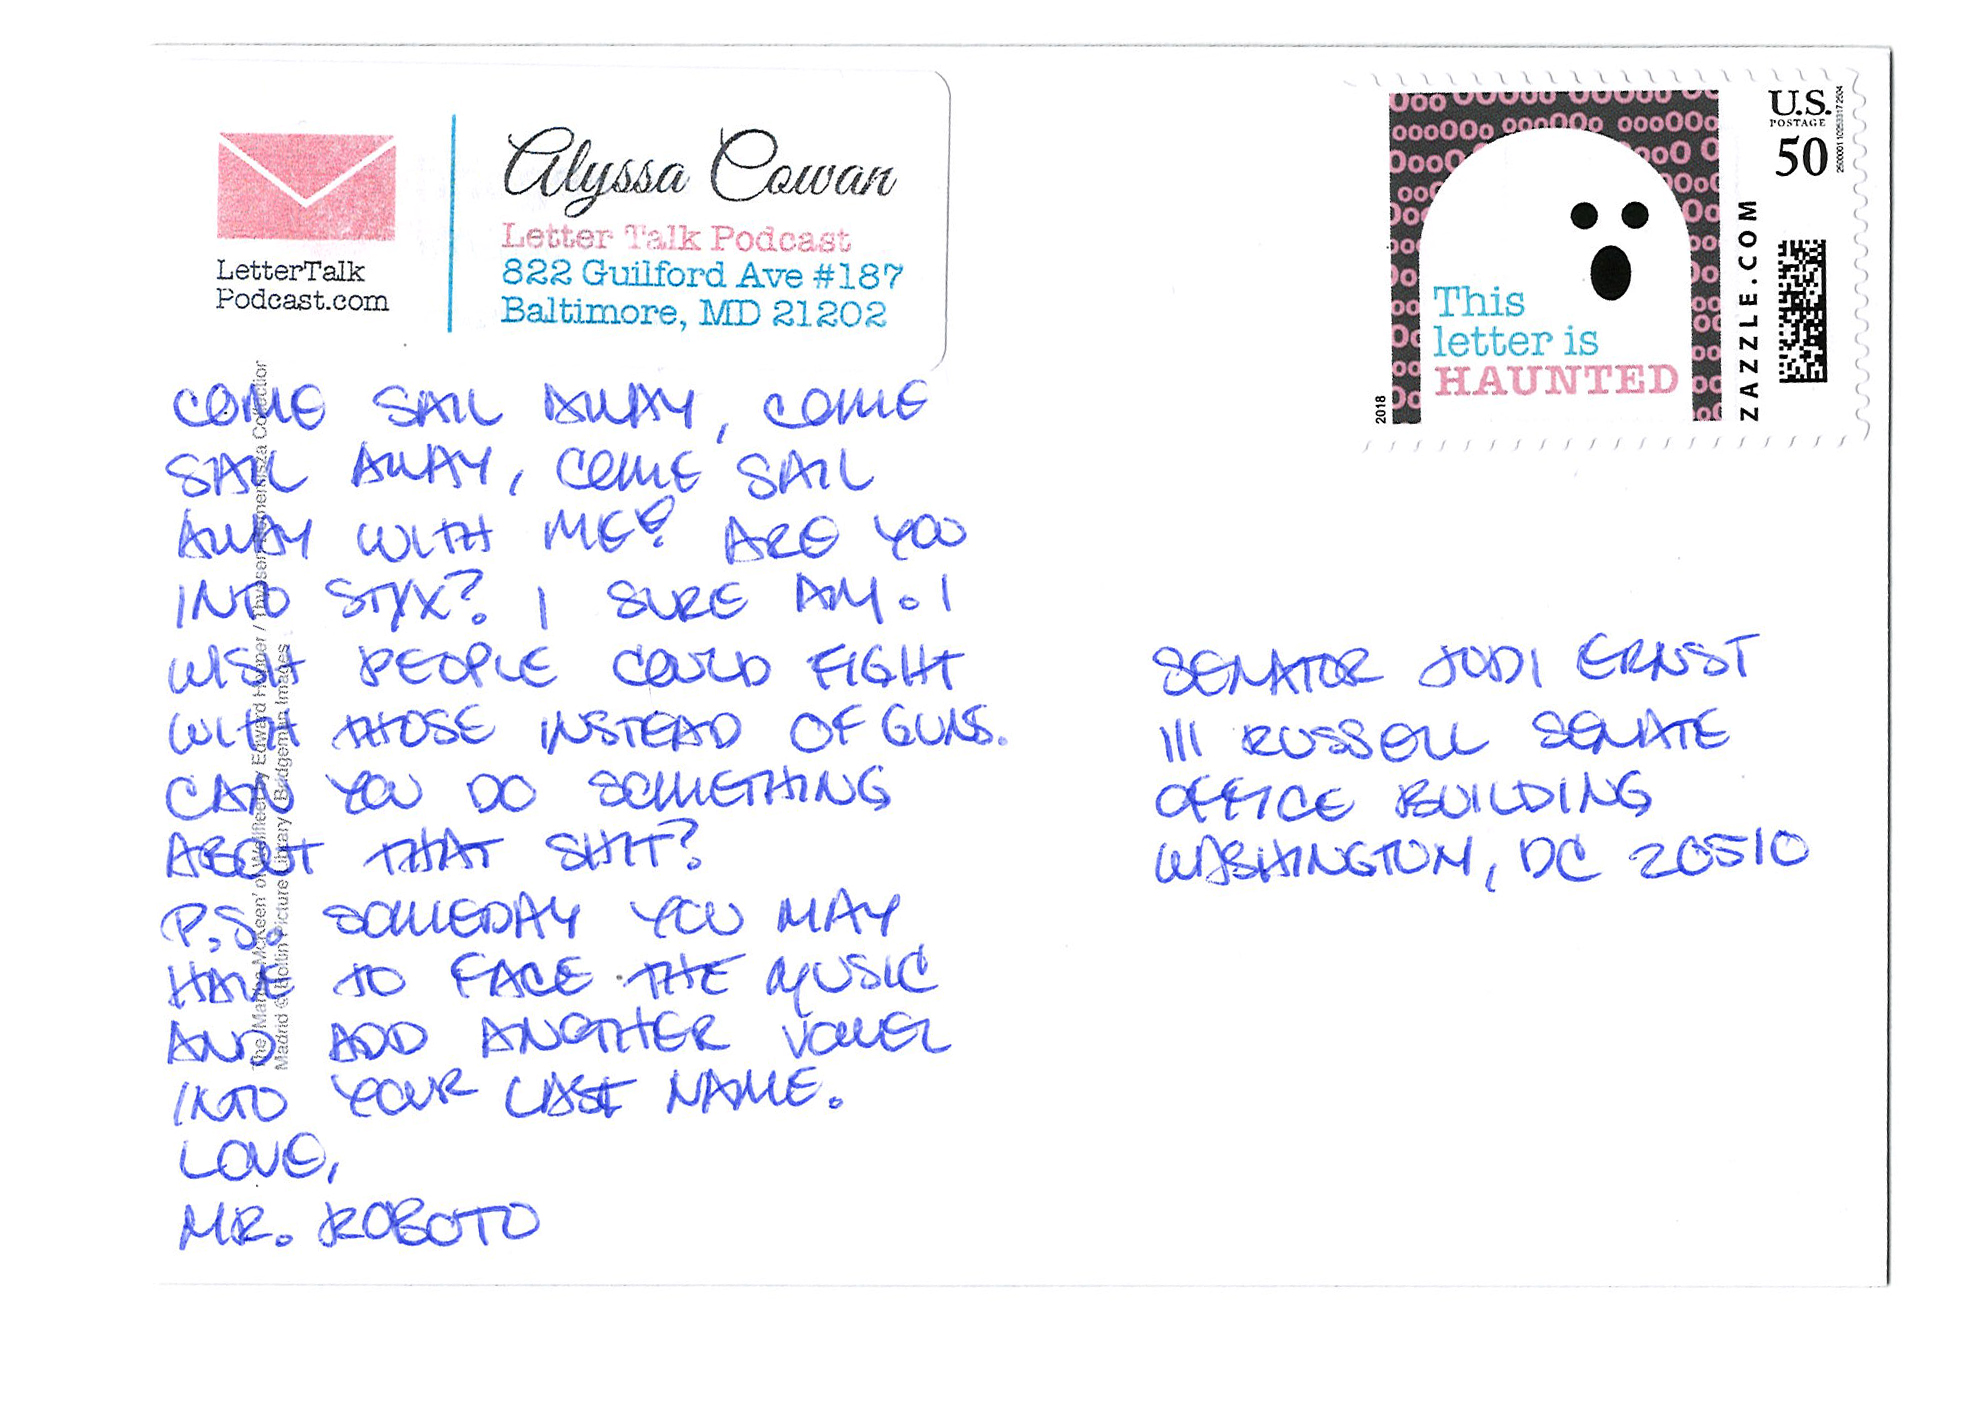 LetterTalk
Podcast.com
Alyssa Cowan
Letter Talk Podcast
822 Guilford Ave #187
Baltimore, MD 21202
oooOOo oooOOo oooOOo
This
letter is
HAUNTED
2018
ZAZZLE.COM
U.S.
POSTAGE
50
COME SAIL AWAY, COME
SAIL AWAY, COME SAIL
AWAY WITH ME? ARE YOU
INTO STYX? I SURE AM. I
WISH PEOPLE COULD FIGHT
WITH THOSE INSTEAD OF GUNS.
CAN YOU DO SOMETHING
ABOUT THAT SHIT?
P.S. SOMEDAY YOU MAY
HAVE TO FACE THE MUSIC
AND ADD ANOTHER VOWEL
INTO YOUR LAST NAME.
LOVE,
MR. ROBOTO
SENATOR JODI ERNST
111 RUSSELL SENATE
OFFICE BUILDING
WASHINGTON, DC 20510
The 'Martha McKeen' of Wellfleet by Edward Hopper / Thyssen-Bornemisza Collection
Madrid © Boltin Picture Library / Bridgeman Images